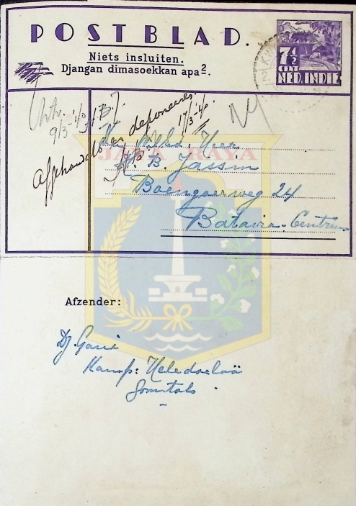 POSTBLAD.
Niets insluiten.
Djangan dimasoekkan apa².
7½
CENT
NED. INDIE
9/3
Afgehandeld en deponeeren.
17/3-'40
JAYA RAYA
H. B. Jassin
Boengoerweg 24
Batavia-Centrum
Afzender:
Dj Garie
Kamp: Heledoelaä
Gorontalo